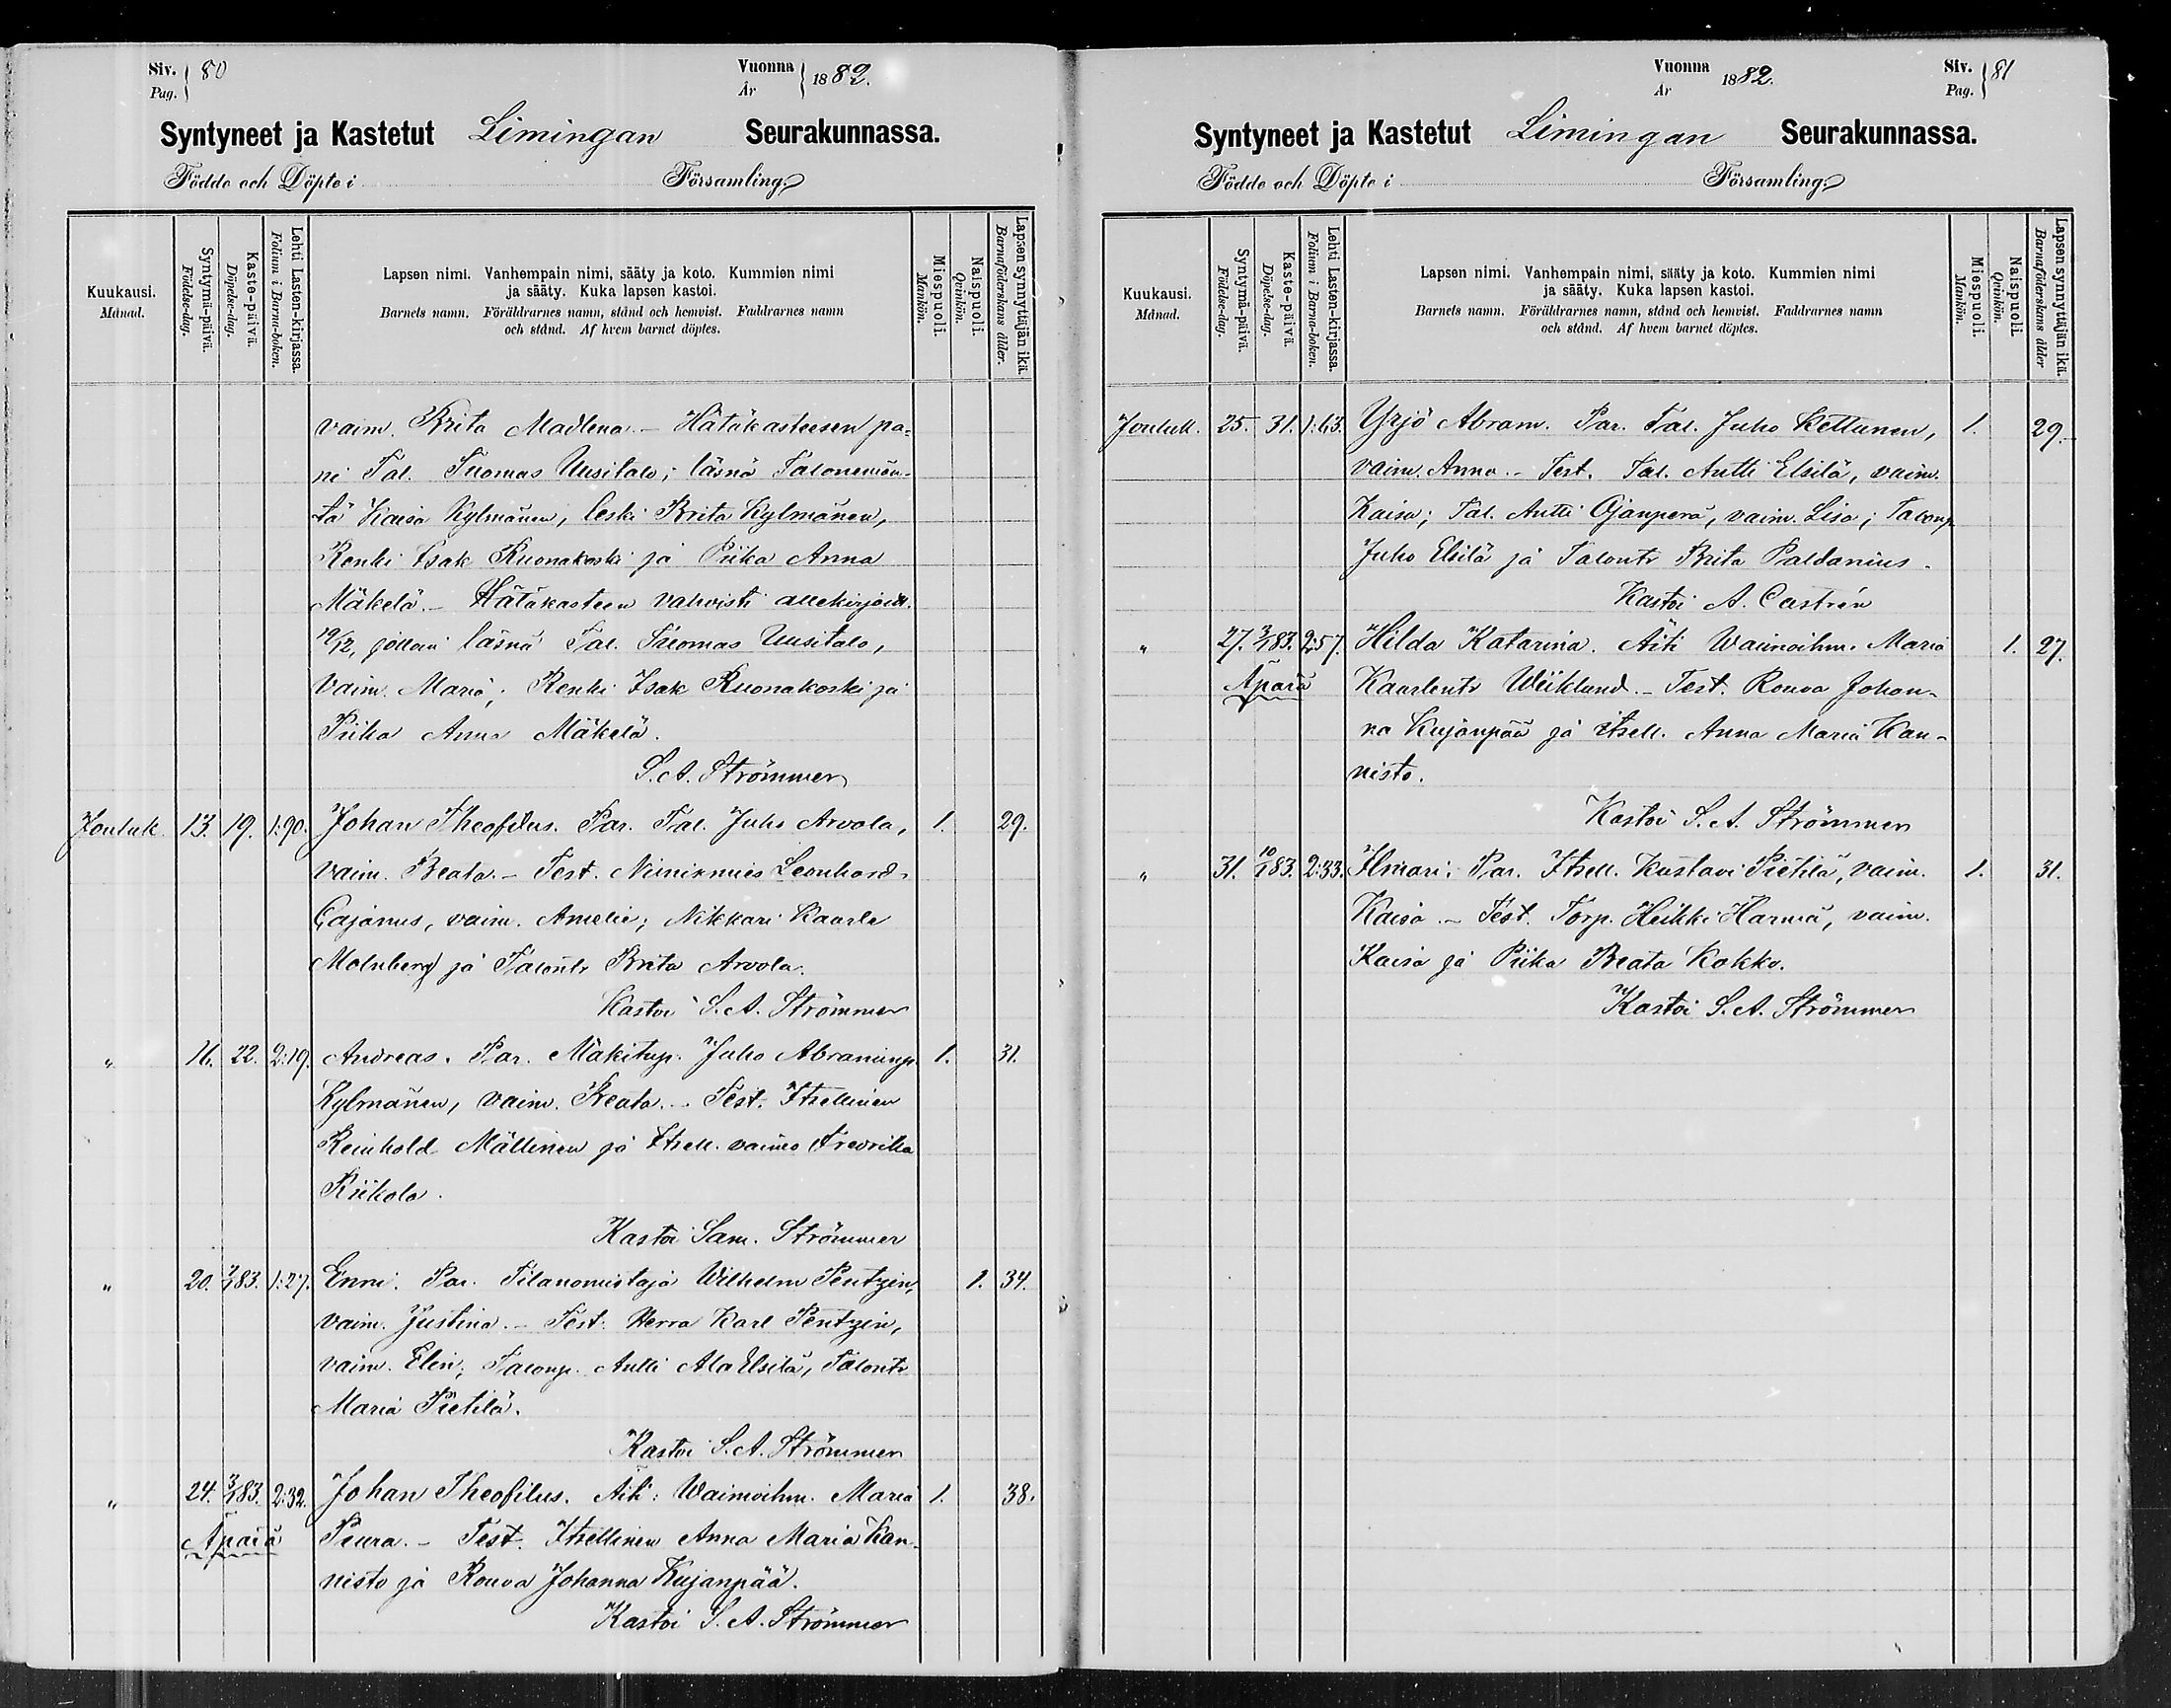 Siv. 80
Pag.
Vuonna 1882.
År
Syntyneet ja Kastetut Limingan Seurakunnassa.
Födde och Döpte i Församling.
Kuukausi.
Månad.
Syntymä-päivä.
Födelse-dag.
Kaste-päivä.
Döpelse-dag.
Lehti Lasten-kirjassa.
Folium i Barna-boken.
Lapsen nimi. Vanhempain nimi, sääty ja koto. Kummien nimi
ja sääty. Kuka lapsen kastoi.
Barnets namn. Föräldrarnes namn, stånd och hemvist. Faddrarnes namn
och stånd. Af hvem barnet döptes.
Miespuoli.
Mankön.
Naispuoli.
Qvinkön.
Lapsen synnyttäjän ikä.
Barnaföderskans ålder.
vaim. Brita Madlena. – Hätäkasteesen pa-
ni Tal. Tuomas Uusitalo; läsnä Talonemän-
tä Kaisa Kylmänen, leski Brita Kylmänen,
Renki Isak Ruonakoski ja Piika Anna
Mäkelä. – Hätäkasteen vahvisti allekirjoitt.
19/12, jolloin läsnä Tal. Tuomas Uusitalo,
vaim. Maria; Renki Isak Ruonakoski ja
Piika Anna Mäkelä.
S. A. Strömmer
Jouluk. 13. 19. 1:90. Johan Theofilus. Par. Tal. Juho Arvola, 1. 29.
vaim. Beata. – Test. Nimismies Leonhard
Cajanus, vaim. Amelie; Nikkari Kaarle
Molnberg ja Talontr Brita Arvola.
Kastoi S. A. Strömmer
„ 16. 22. 2:19. Andreas. Par. Mäkitup. Juho Abraminp. 1. 31.
Kylmänen, vaim. Beata. – Test. Itsellinen
Reinhold Mällinen ja Itsell. vaimo Fredrika
Riikola.
Kastoi Sam. Strömmer
„ 20. 2/1 83. 1:27. Enni. Par. Tilanomistaja Wilhelm Pentzin, 1. 34.
vaim. Justina. – Test. Herra Karl Pentzin,
vaim. Elin; Talonp. Antti AlaElsilä, Talontr
Maria Pietilä.
Kastoi S. A. Strömmer
„ 24. 3/1 83. 2:32. Johan Theofilus. Äiti: Waimoihm. Maria 1. 38.
Äpärä Peura. – Test. Itsellinen Anna Maria Kan-
nisto ja Rouva Johanna Kujanpää.
Kastoi S. A. Strömmer
Vuonna 1882.
År
Siv. 81
Pag.
Syntyneet ja Kastetut Limingan Seurakunnassa.
Födde och Döpte i Församling.
Kuukausi.
Månad.
Syntymä-päivä.
Födelse-dag.
Kaste-päivä.
Döpelse-dag.
Lehti Lasten-kirjassa.
Folium i Barna-boken.
Lapsen nimi. Vanhempain nimi, sääty ja koto. Kummien nimi
ja sääty. Kuka lapsen kastoi.
Barnets namn. Föräldrarnes namn, stånd och hemvist. Faddrarnes namn
och stånd. Af hvem barnet döptes.
Miespuoli.
Mankön.
Naispuoli.
Qvinkön.
Lapsen synnyttäjän ikä.
Barnaföderskans ålder
Jouluk. 25. 31. 1:63. Yrjö Abram. Par. Tal. Juho Kettunen, 1. 29.
vaim. Anna. – Test. Tal. Antti Elsilä, vaim.
Kaisa; Tal. Antti Ojanperä, vaim. Lisa; Talonp
Juho Elsilä ja Talontr Brita Paldanius.
Kastoi A. Castrén
„ 27. 3/1 83. 2:57. Hilda Katarina. Äiti Waimoihm. Maria 1. 27.
Äpärä Kaarlentr Wiiklund. – Test. Rouva Johan-
na Kujanpää ja itsell. Anna Maria Kan-
nisto.
Kastoi S. A. Strömmer
„ 31. 10/1 83. 2:33. Ilmari. Par. Itsell. Kustavi Pietilä, vaim. 1. 31.
Kaisa. – Test. Torp. Heikki Harmä, vaim.
Kaisa ja Piika Beata Kokko.
Kastoi S. A. Strömmer